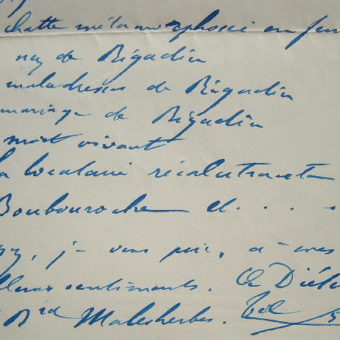 chatte métamorphosée en fem
nez de Rigadin
maladresses de Rigadin
mariage de Rigadin
mort vivant
a locataire récalcitrante
Boubouroche et . . . .
je vous prie, à mes
lleurs sentiments.
Bd Malesherbes.